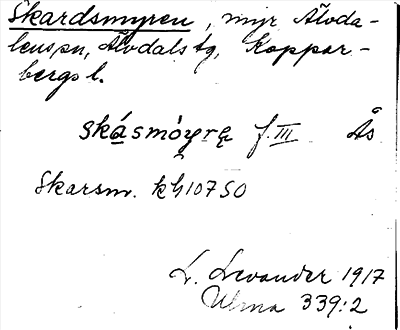 Skardsmyren, myr Älvda-
lens sn, Älvdals tg, Koppar-
bergs l.
skásmöyrę f. III Ås
Skarsm. kh 107 SO
L. Levander 1917
Ulma 339:2